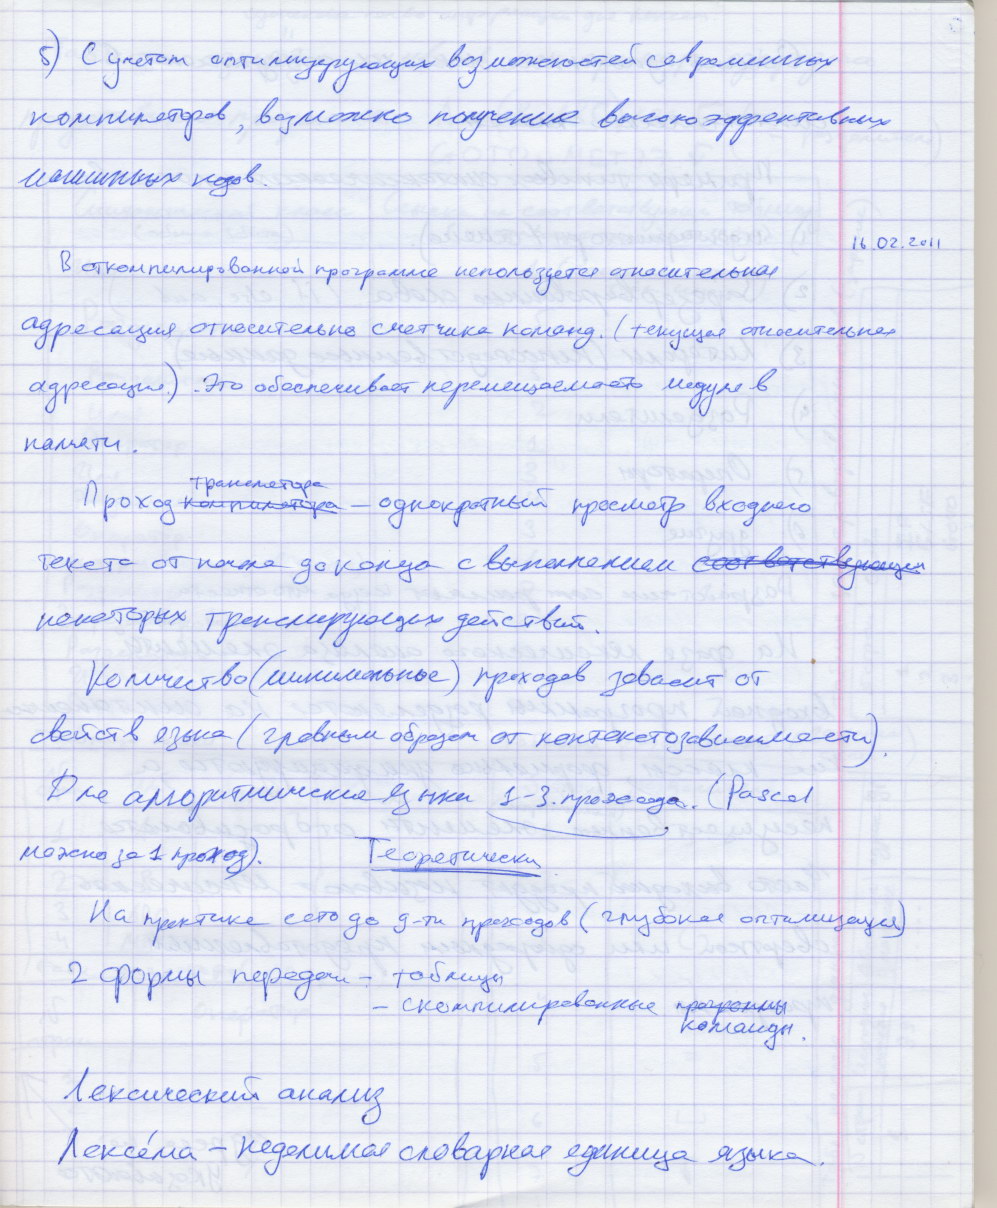 5) С учетом оптимизирующих возможностей современных
компиляторов, возможно получение высокоэффективных
машинных кодов.
16.02.2011
В откомпилированной программе используется относительная
адресация относительно счетчика команд. (текущая относительная
адресация). Это обеспечивает перемещаемость модуля в
памяти.
транслятора
Проход компилятора – однократный просмотр входного
текста от начала до конца с выполнением соответствующих
некоторых транслирующих действий.
Количество (минимальное) проходов зависит от
свойств языка (главным образом от контекстозависимости).
Для алгоритмических языка 1-3 прохода. (Pascal
можно за 1 проход). Теоретически
На практике есть до д-ти проходов (глубокая оптимизация)
2 формы передачи – таблицы
– скомпилированные программы
команды.
Лексический анализ
Лексе́ма – неделимая словарная единица языка.